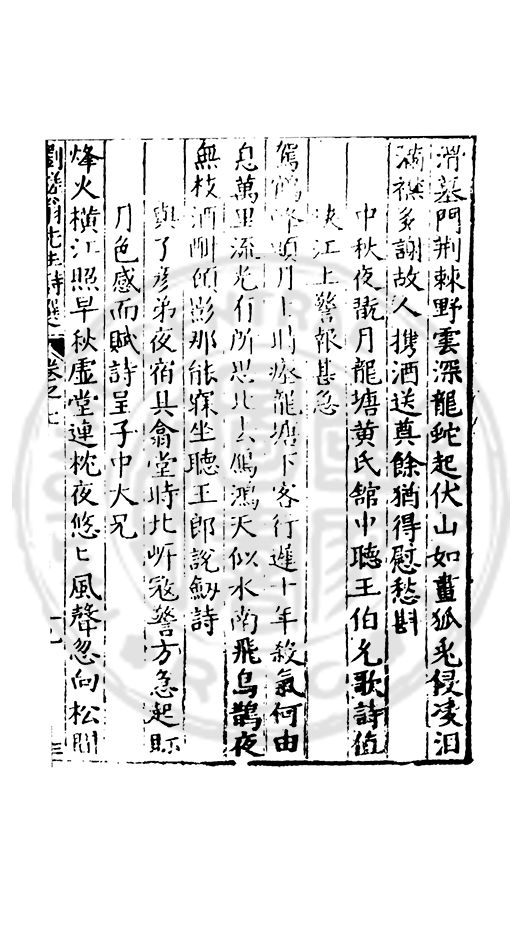 渭墓門荆棘野雲深龍蛇起伏山如畫狐兎侵凌泪
滿襟多謝故人携酒送奠餘猶得慰愁斟
中秋夜翫月龍塘黄氏舘中聽王伯允歌詩值
江上警報甚急
峰頭月上時 龍塘下客行遲十年殺氣何由
息萬里流光有所思北去鴈鴻天似水南飛烏鵲夜
無枝酒酣頗 那能寐坐聽王郎說劒詩
與了彦弟夜宿具翕堂時北岍冦警方急起
月色感而賦詩呈子中大兄
烽火橫江照早秋虛堂連枕夜悠〻風聲忽向松
先生詩選 卷之